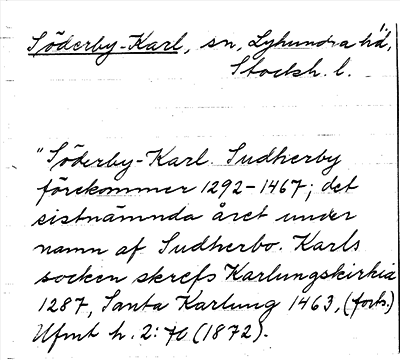 Söderby-Karl, sn, Lyhundra hd,
Stockh. l.
"Söderby-Karl. Sudherby
förekommer 1292-1467; det
sistnämnda året under
namn af Sudherbo. Karls
socken skrefs Karlungskirkia
1287, Santa Karlung 1463, (forts.)
Ufmt h. 2: 70 (1872).